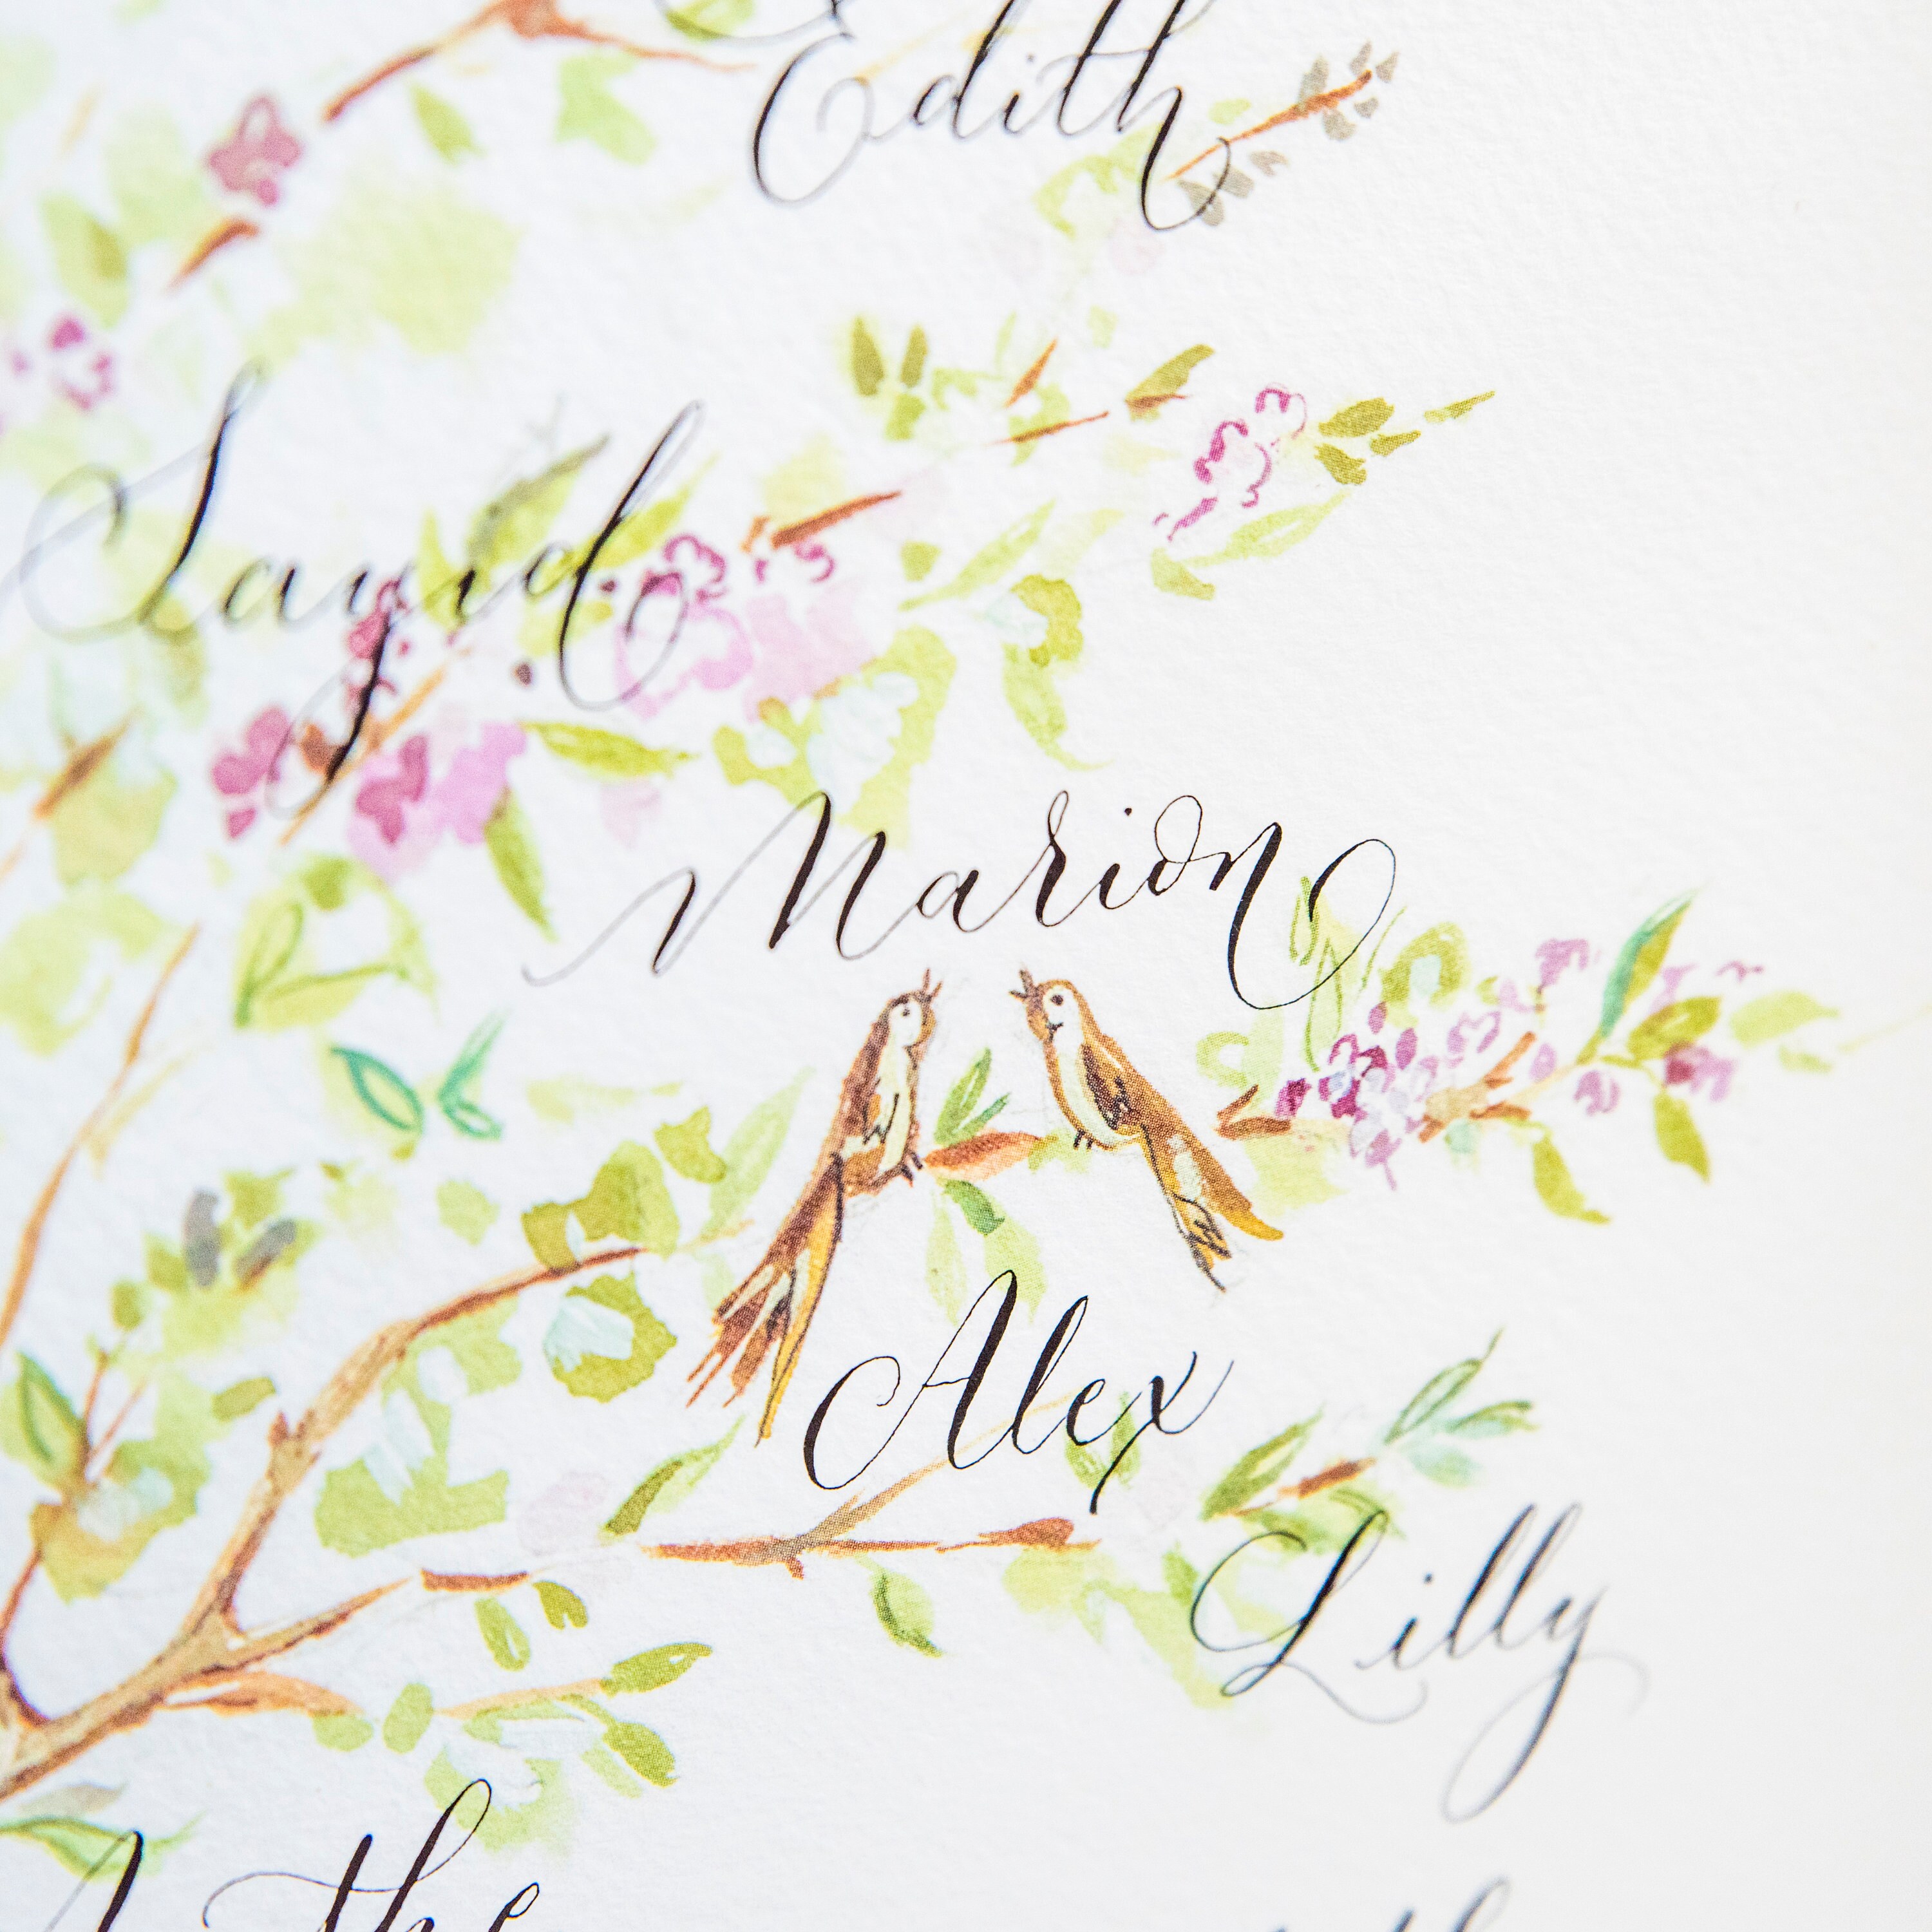 Edith
Sayid
Marion
Alex
Lilly
the